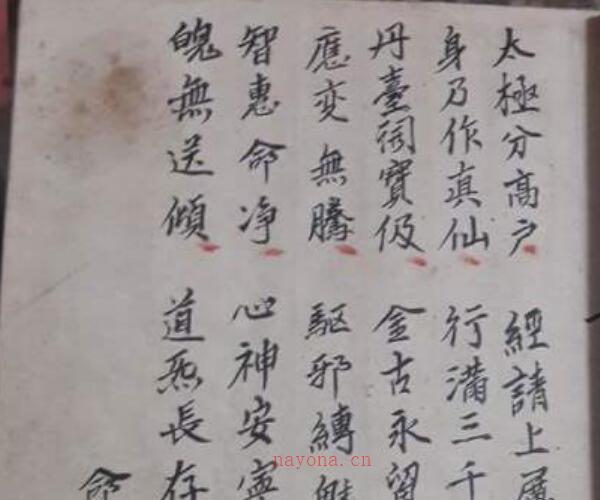 太極分高户 經請上
身乃作真仙 行滿三千
丹臺寶伋 金古永留
應変無騰 驅邪縛魅
智惠命净 心神安寧
魄無送傾 道炁長存
命
nayona.cn